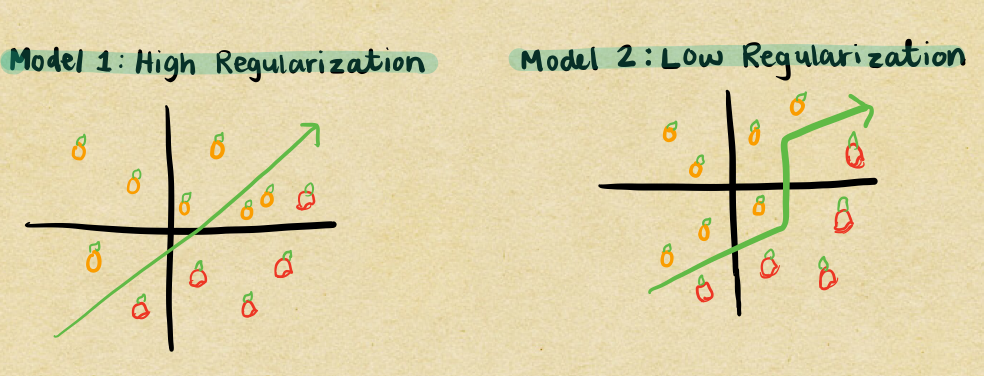 Model 1: High Regularization
Model 2: Low Regularization